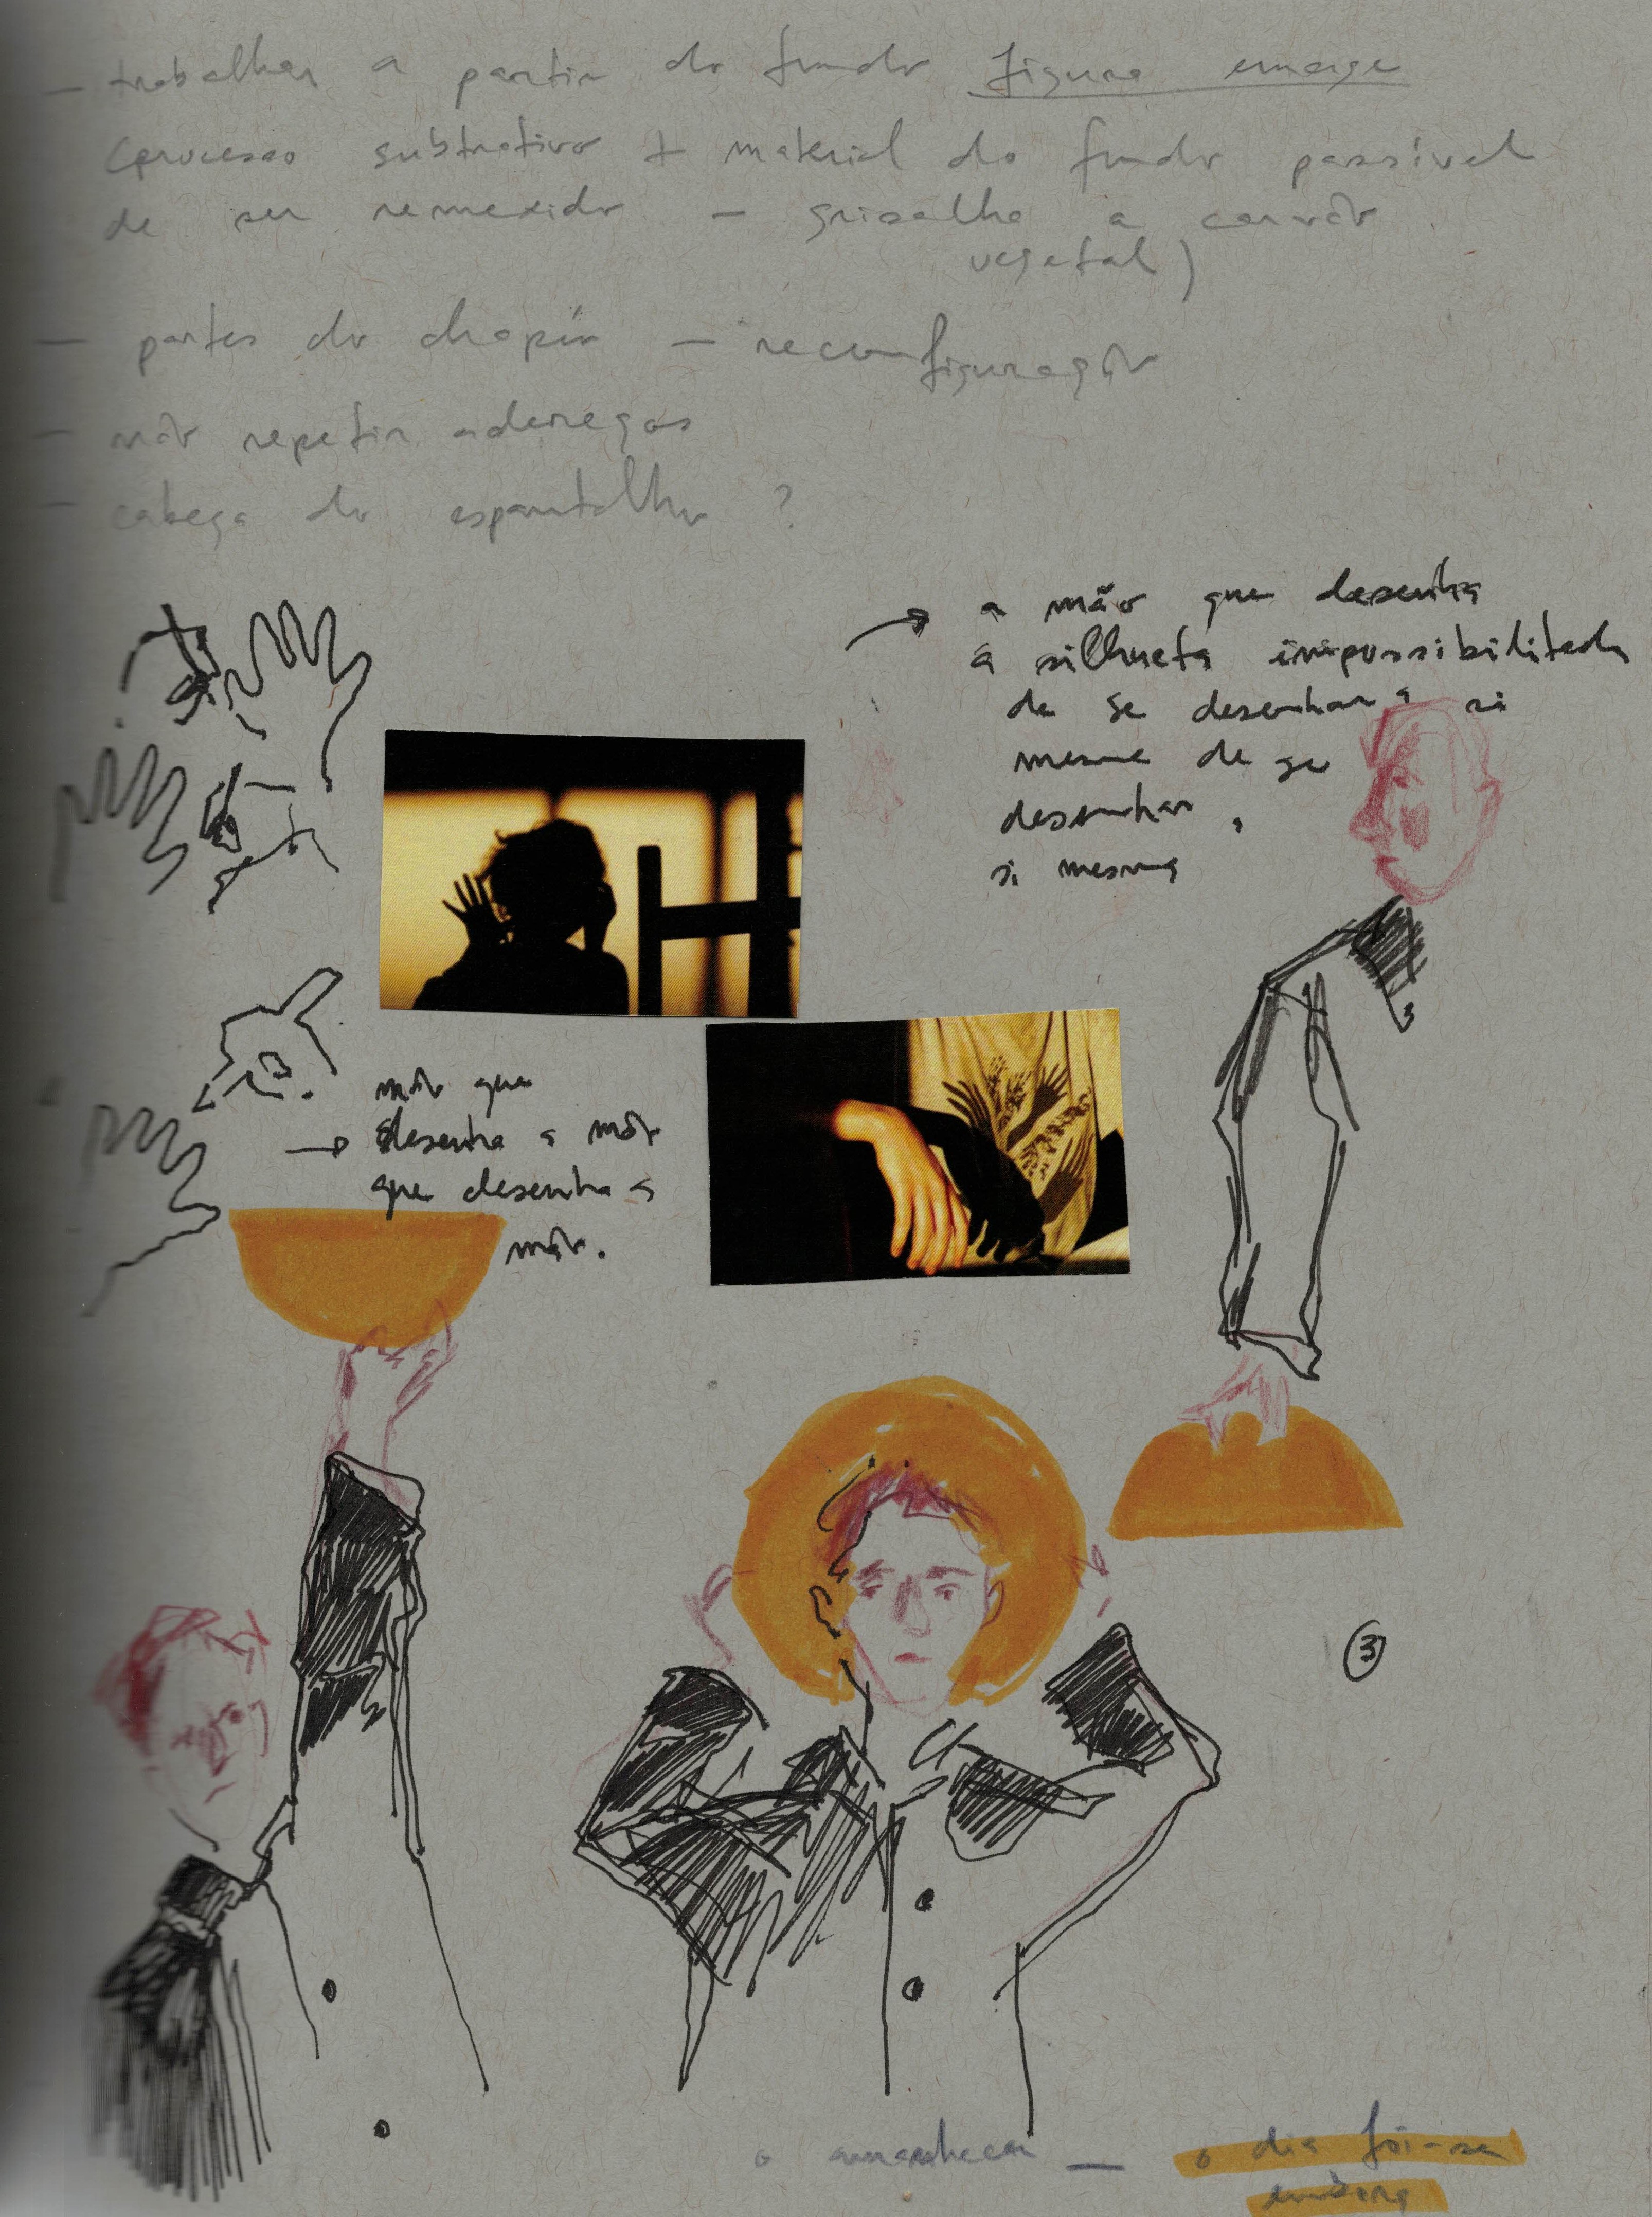 — trabalhar a partir do fundo figura emerge
(processo subtrativo + material do fundo passível
de ser remexido — grisalha a carvão
vegetal)
— partes do chapéu — reconfiguração
— não repetir adereços
— cabeça do espantalho ?
→ a mão que desenha
a silhueta impossibilitada
de se desenhar a si
mesma de se
desenhar,
si mesma
mão que
→ desenha a mão
que desenha a
mão.
3
o amanhecer — o dia foi-se
embora